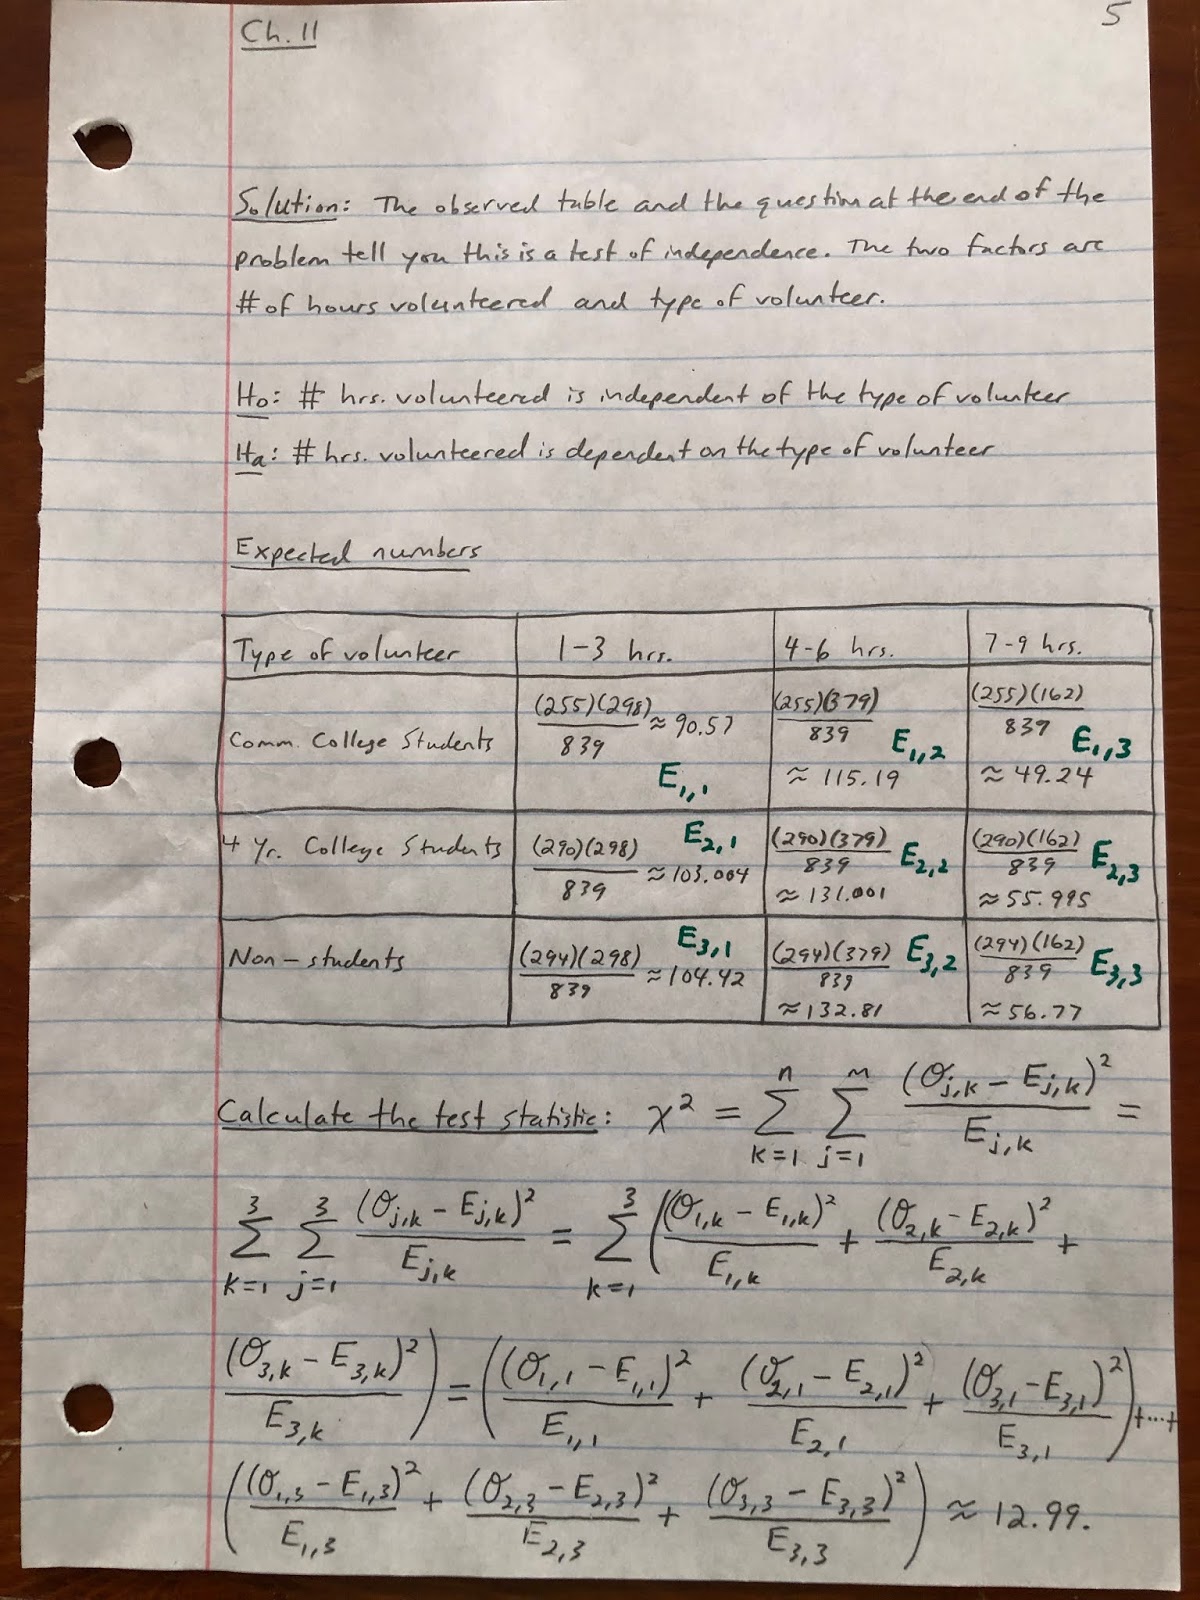 Ch. 11
5
Solution: The observed table and the question at the end of the
problem tell you this is a test of independence. The two factors are
# of hours volunteered and type of volunteer.
H₀: # hrs. volunteered is independent of the type of volunteer
Hₐ: # hrs. volunteered is dependent on the type of volunteer
Expected numbers
Type of volunteer | 1-3 hrs. | 4-6 hrs. | 7-9 hrs.
Comm. College Students | (255)(298)/839 ≈ 90.57 E₁,₁ | (255)(379)/839 ≈ 115.19 E₁,₂ | (255)(162)/839 ≈ 49.24 E₁,₃
4 Yr. College Students | (290)(298)/839 ≈ 103.004 E₂,₁ | (290)(379)/839 ≈ 131.001 E₂,₂ | (290)(162)/839 ≈ 55.995 E₂,₃
Non-students | (294)(298)/839 ≈ 104.42 E₃,₁ | (294)(379)/839 ≈ 132.81 E₃,₂ | (294)(162)/839 ≈ 56.77 E₃,₃
Calculate the test statistic: χ² = ∑_{k=1}^{n} ∑_{j=1}^{m} (O_{j,k} - E_{j,k})²/E_{j,k} =
∑_{k=1}^{3} ∑_{j=1}^{3} (O_{j,k} - E_{j,k})²/E_{j,k} = ∑_{k=1}^{3} ((O_{1,k} - E_{1,k})²/E_{1,k} + (O_{2,k} - E_{2,k})²/E_{2,k} +
(O_{3,k} - E_{3,k})²/E_{3,k}) = ((O_{1,1} - E_{1,1})²/E_{1,1} + (O_{2,1} - E_{2,1})²/E_{2,1} + (O_{3,1} - E_{3,1})²/E_{3,1}) + ... +
((O_{1,3} - E_{1,3})²/E_{1,3} + (O_{2,3} - E_{2,3})²/E_{2,3} + (O_{3,3} - E_{3,3})²/E_{3,3}) ≈ 12.99.